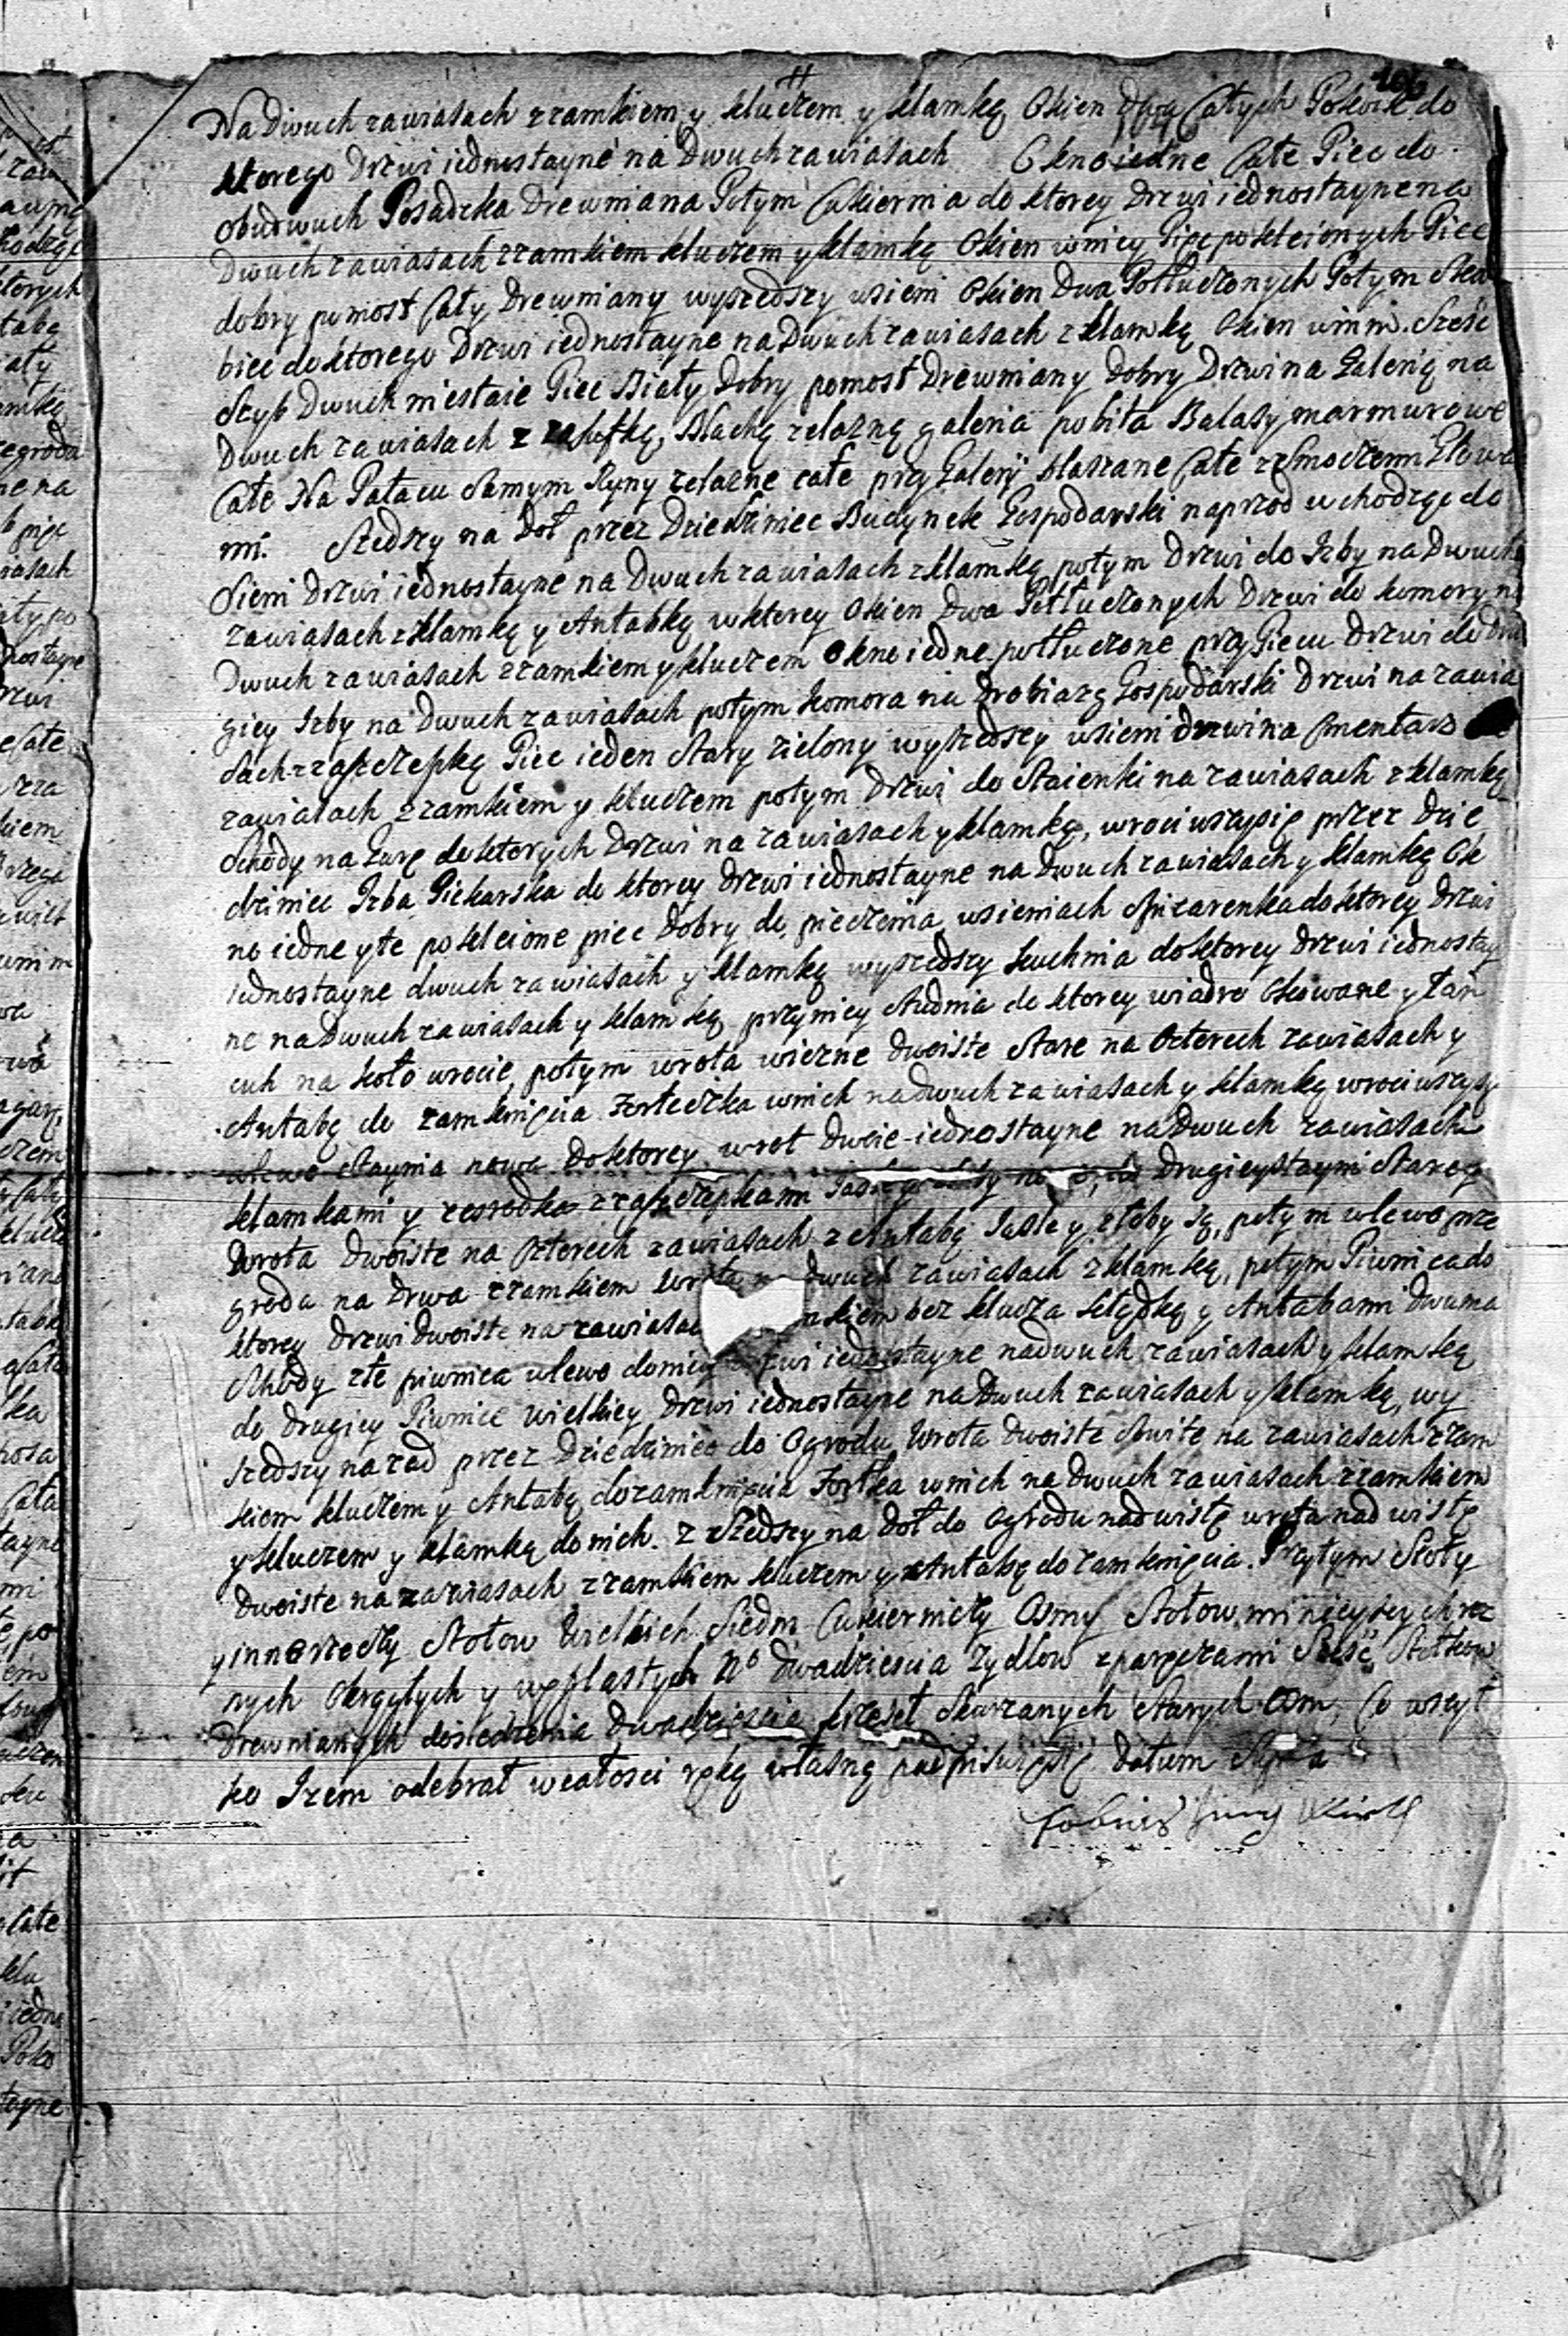 106
Na Dwuch zawiasach z zamkiem y kluczem y klamką Okien dwa Całych Pokoik do
ktorego Drzwi iednostayne na Dwuch zawiasach Okno iedne Całe Piec do
obudwuch Posadzka Drewniana Potym Cukiernia do ktorey Drzwi iednostayne na
Dwuch zawiasach z zamkiem kluczem y klamką Okien w niey Pięc poskleionych Piec
dobry pomost Cały Drewniany wyszedszy w sieni Okien Dwa Potłuczonych Potym Skar
biec do ktorego Drzwi iednostayne na Dwuch zawiasach z klamką Okien w nim Sześć
Szyb Dwuch niestaie Piec Biały Dobry pomost Drewniany Dobry Drzwi na Galerią na
Dwuch zawiasach z Blachą zelazną galeria pobita Balasy marmurowe
Całe Na Pałacu Samym Ryny zelazne całe przy Galerÿ blaszane Całe z Smoczemi Głowa
mi. Szedszy na Doł przez Dziedziniec Budynek Gospodarski naprzod wchodząc do
Sieni Drzwi iednostayne na Dwuch zawiasach z klamką potym Drzwi do Izby na Dwuch
zawiasach z klamką y Antabką w ktorey Okien Dwa Potłuczonych Drzwi do komory na
Dwuch zawiasach z zamkiem y kluczem Okno iedne potłuczone przy Piecu Drzwi do Dru
giey Izby na Dwuch zawiasach potym komora na Drobiazg Gospodarski Drzwi na zawia
sach z zaszczepką Piec ieden Stary zielony wyszedszy w sieni drzwi na Cmentarz
zawiasach z zamkiem y kluczem potym Drzwi do Staienki na zawiasach z klamką
Schody na Gurę do ktorych Drzwi na zawiasach y klamką, wrociwszysię przez Dzie
dziniec Izba Piekarska do ktorey Drzwi iednostayne na Dwuch zawiasach y klamką Ok
no iedne y te posklcione piec Dobry do pieczenia w sieniach Spizarenka do ktorey Drzwi
iednostayne dwuch zawiasach y klamką wyszedszy kuchnia do ktorey Drzwi iednostay
ne na Dwuch zawiasach y klamką przyniey studnia do ktorey wiadro Okowane y Łań
cuh na kołowrocie, potym wrota wiezne Dwoiste Stare na Czterech zawiasach y
Antabą do zamknięcia Forteczka w nich na dwuch zawiasach y klamką wrociwszysię
w lewo Staynia nowa Do ktorey wrot Dwoie iednostayne na Dwuch zawiasach
klamkami y zesrodka z zaszczepkami Drugiey stayni Starey
Wrota Dwoiste na Czterech zawiasach z Antabą Iasle y złoby są, potym w lewo prze
groda na Drwa z zamkiem Dwuch zawiasach z klamką, potym Piwnica do
ktorey Drzwi Dwoiste na zawiasach bez klucza kłodką y Antabami Dwuma
Schody złe piwnica w lewo do niey drzwi iednostayne na dwuch zawiasach y klamką
do drugiey Piwnice wielkiey Drzwi iednostayne na Dwuch zawiasach y klamką, wy
szedszy nazad przez Dziedziniec do Ogrodu Wrota Dwoiste na zawiasach z zam
kiem kluczem y Antabą do zamknięcia Fortka w nich na dwuch zawiasach z zamkiem
y kluczem y klamką do nich. Z szedszy na doł do Ogrodu nad wisłę wrota nad wisłę
Dwoiste na zawiasach z zamkiem kluczem y Antabą do zamknięcia. Przytym Stoły
y inne rzeczy Stołow Wielkich Siedm Cukierniczy Osmy Stołow mnieyszych roz
nych Okrągłych y N° dwadziescia Zydlow z poręczami Sześć, Stołkow
Drewnianych do siedzenia dwadziescia krzeseł Skorzanych Starych Osm, Co wszyt
ko Izem odebrał w całosci ręką własną podpisuięsię Datum